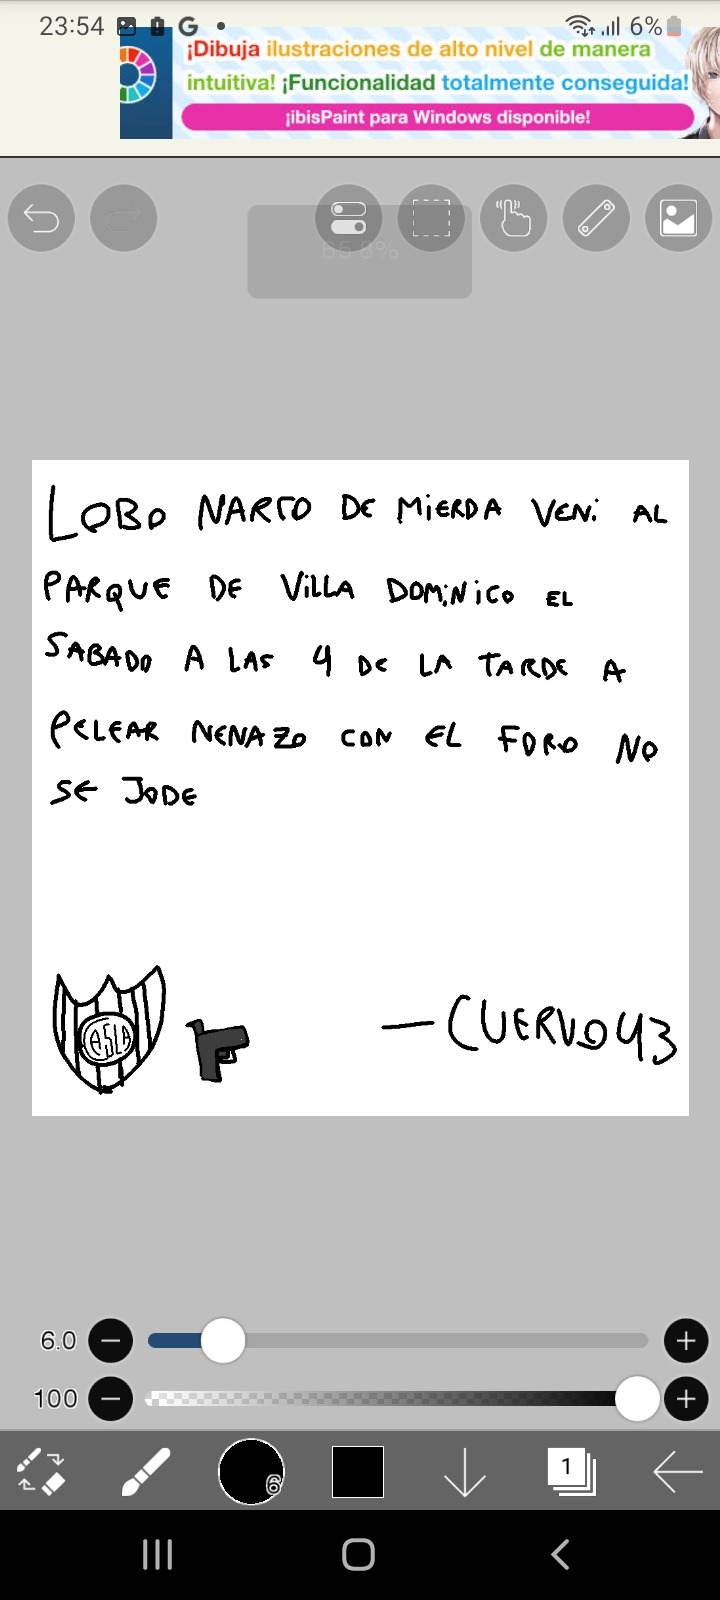 23:54 G 6%
¡Dibuja ilustraciones de alto nivel de manera
intuitiva! ¡Funcionalidad totalmente conseguida!
¡ibisPaint para Windows disponible!
65.8%
LOBO NARCO DE MIERDA VENI AL
PARQUE DE VILLA DOMINICO EL
SABADO A LAS 4 DE LA TARDE A
PELEAR NENAZO CON EL FORO NO
SE JODE
CASLA
—CUERVO43
6.0
100
6
1